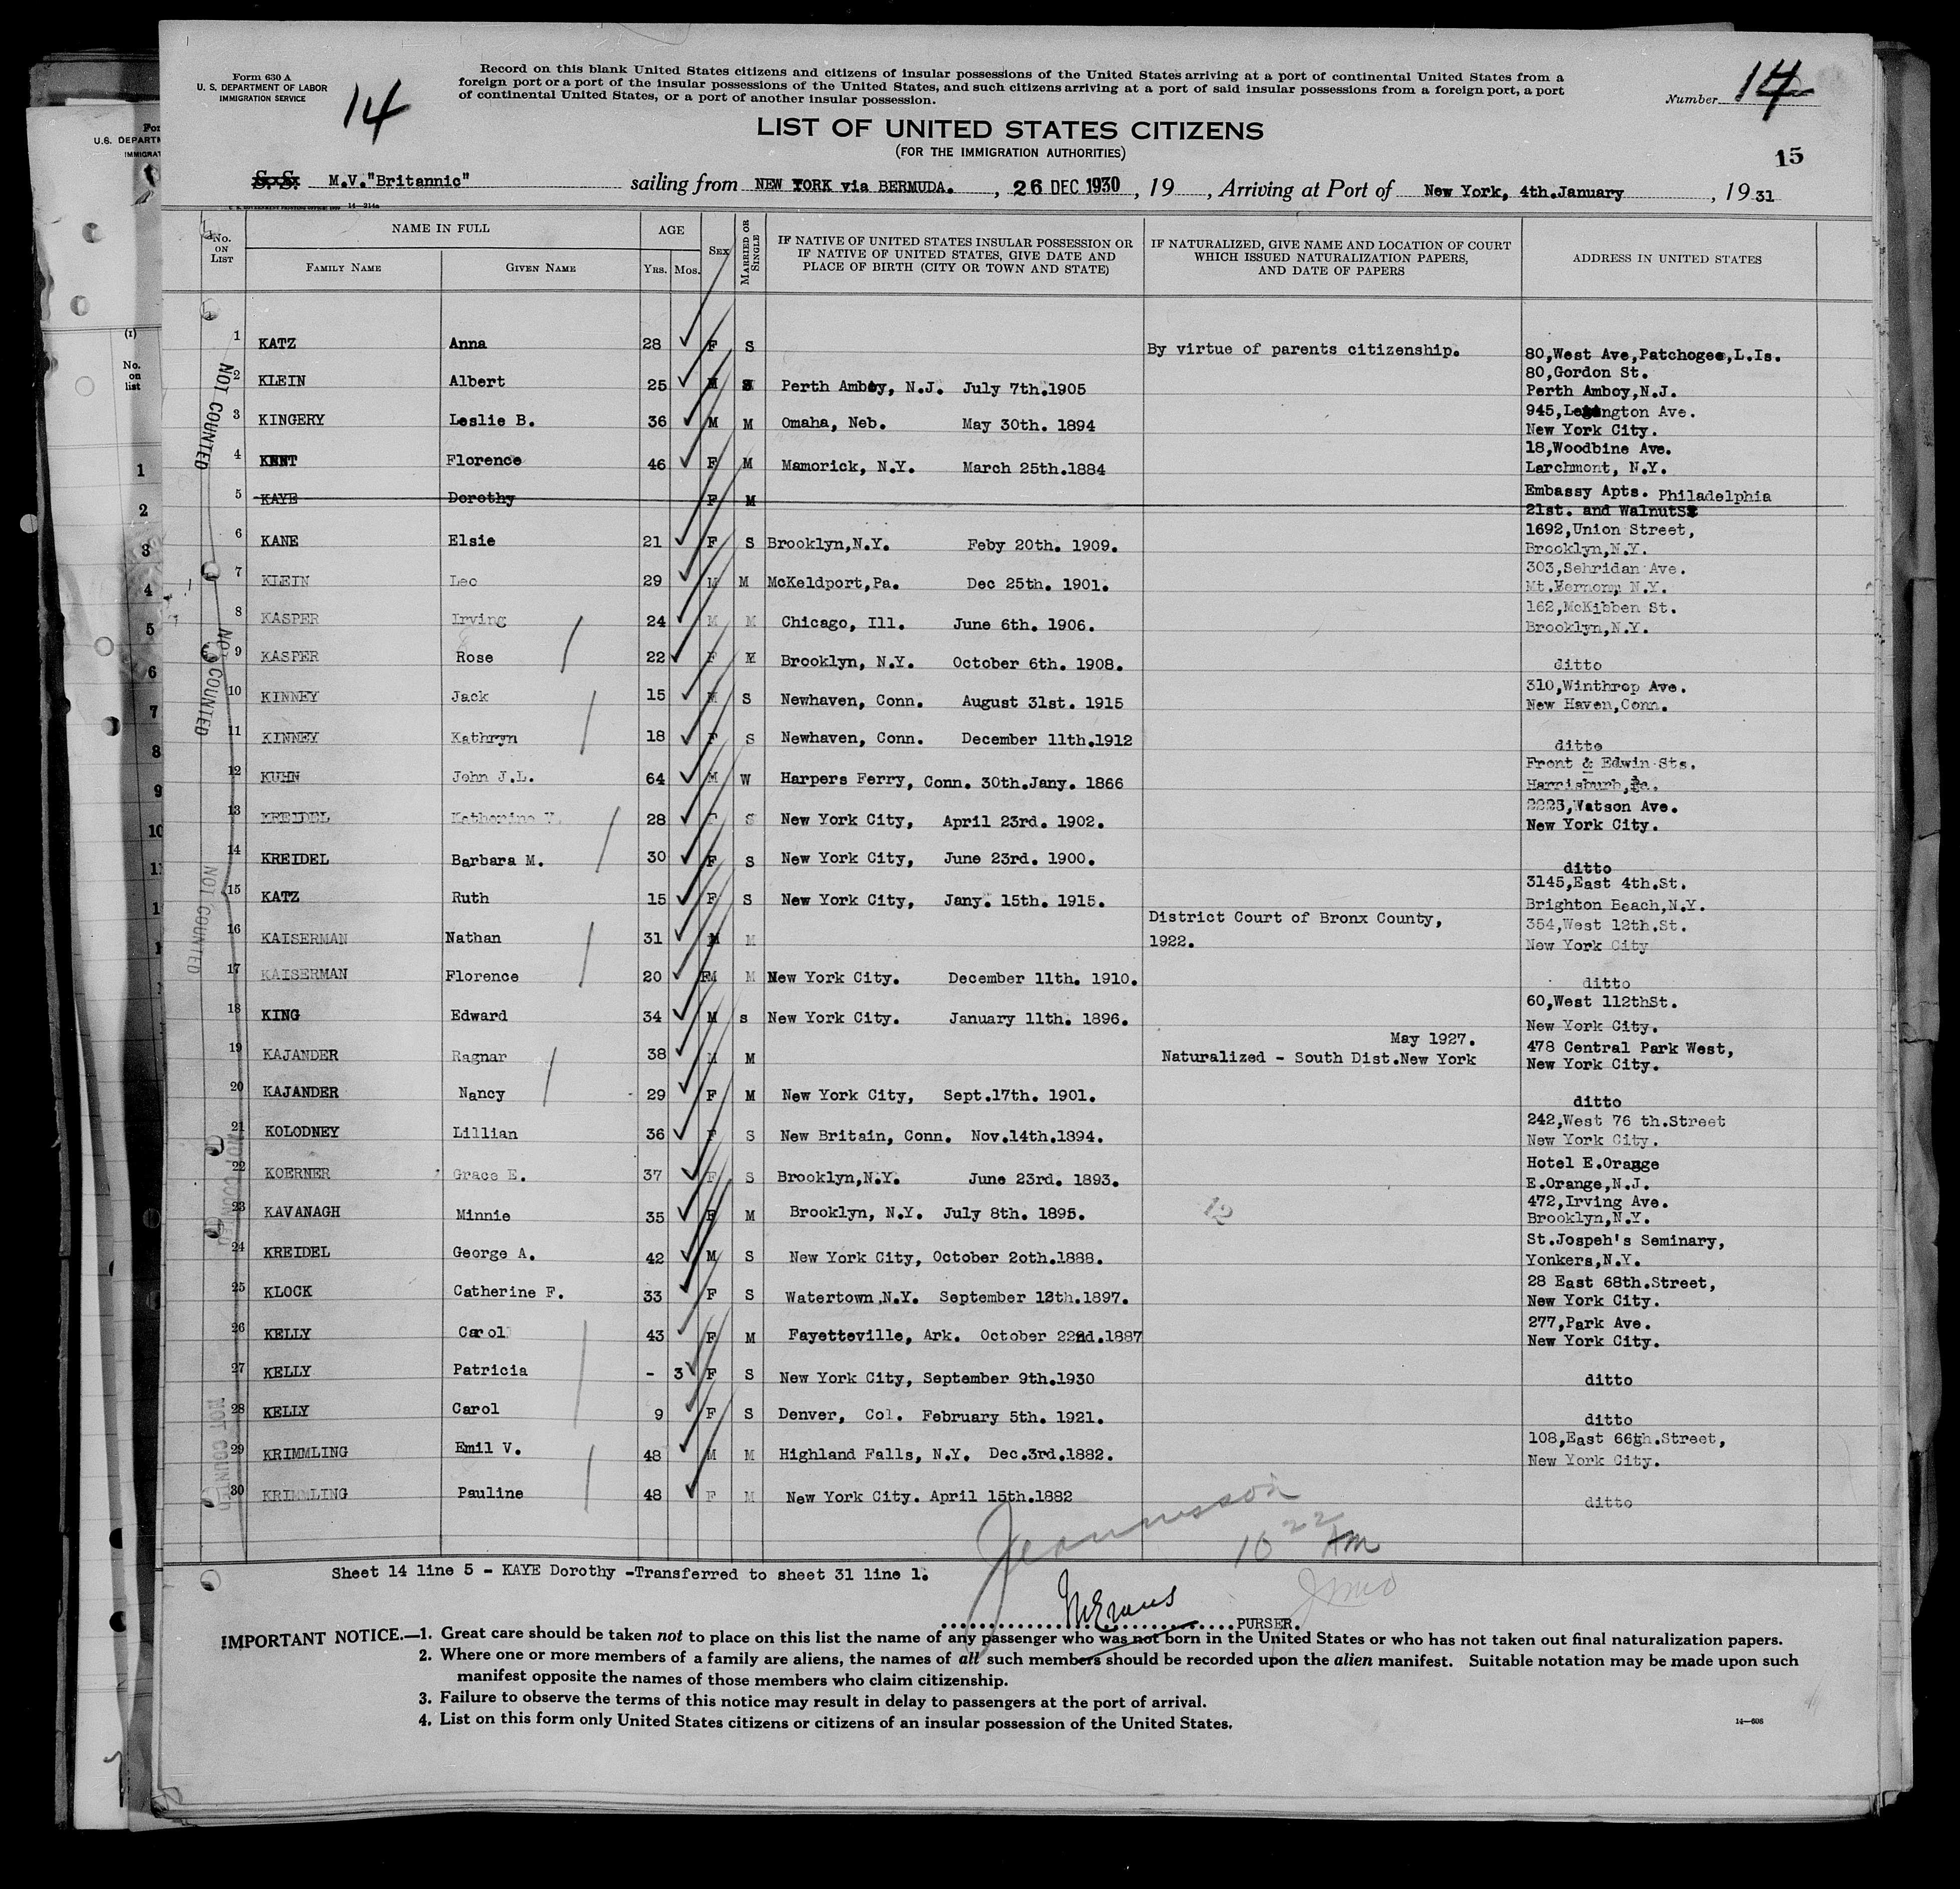 Form 630 A
U. S. DEPARTMENT OF LABOR
IMMIGRATION SERVICE
14
Record on this blank United States citizens and citizens of insular possessions of the United States arriving at a port of continental United States from a
foreign port or a port of the insular possessions of the United States, and such citizens arriving at a port of said insular possessions from a foreign port, a port
of continental United States, or a port of another insular possession.
Number 14
LIST OF UNITED STATES CITIZENS
(FOR THE IMMIGRATION AUTHORITIES)
15
S. S. M.V."Britannic" sailing from NEW YORK via BERMUDA. , 26 DEC 1930 , 19 , Arriving at Port of New York, 4th.January , 19 31
No. ON LIST NAME IN FULL FAMILY NAME GIVEN NAME AGE YRS. MOS. SEX MARRIED OR SINGLE IF NATIVE OF UNITED STATES INSULAR POSSESSION OR IF NATIVE OF UNITED STATES, GIVE DATE AND PLACE OF BIRTH (CITY OR TOWN AND STATE) IF NATURALIZED, GIVE NAME AND LOCATION OF COURT WHICH ISSUED NATURALIZATION PAPERS, AND DATE OF PAPERS ADDRESS IN UNITED STATES
1 KATZ Anna 28 F S By virtue of parents citizenship. 80,West Ave,Patchogee,L.Is.
2 KLEIN Albert 25 M S Perth Amboy, N.J. July 7th.1905 80,Gordon St.
Perth Amboy,N.J.
3 KINGERY Leslie B. 36 M M Omaha, Neb. May 30th. 1894 945, Ave.
New York City.
4 KENT Florence 46 F M Mamorick, N.Y. March 25th.1884 18,Woodbine Ave.
Larchmont, N.Y.
5 KAYE Dorothy F M Embassy Apts. Philadelphia
21st. and WalnutSt
6 KANE Elsie 21 F S Brooklyn,N.Y. Feby 20th. 1909. 1692,Union Street,
Brooklyn,N.Y.
7 KLEIN Leo 29 M M McKeldport,Pa. Dec 25th. 1901. 303,Sehridan Ave.
Mt. N.Y.
8 KASPER Irving 24 M M Chicago, Ill. June 6th. 1906. 162,McKibben St.
Brooklyn,N.Y.
9 KASPER Rose 22 F M Brooklyn, N.Y. October 6th. 1908. ditto
10 KINNEY Jack 15 M S Newhaven, Conn. August 31st. 1915 310,Winthrop Ave.
New Haven,Conn.
11 KINNEY Kathryn 18 F S Newhaven, Conn. December 11th.1912 ditto
12 KUHN John J.L. 64 M W Harpers Ferry, Conn. 30th.Jany. 1866 Front & Edwin Sts.
Harrisburh,
13 KREIDEL Katherine 28 F S New York City, April 23rd. 1902. 2223,Watson Ave.
New York City.
14 KREIDEL Barbara M. 30 F S New York City, June 23rd. 1900. ditto
15 KATZ Ruth 15 F S New York City, Jany. 15th. 1915. 3145,East 4th.St.
Brighton Beach,N.Y.
16 KAISERMAN Nathan 31 M M District Court of Bronx County,
1922. 354,West 12th.St.
New York City
17 KAISERMAN Florence 20 FM M New York City. December 11th. 1910. ditto
18 KING Edward 34 M s New York City. January 11th. 1896. 60,West 112thSt.
New York City.
19 KAJANDER Ragnar 38 M M May 1927.
Naturalized - South Dist.New York 478 Central Park West,
New York City.
20 KAJANDER Nancy 29 F M New York City, Sept.17th. 1901. ditto
21 KOLODNEY Lillian 36 F S New Britain, Conn. Nov.14th.1894. 242,West 76 th.Street
New York City.
22 KOERNER Grace E. 37 F S Brooklyn,N.Y. June 23rd. 1893. Hotel E.Orange
E.Orange,N.J.
23 KAVANAGH Minnie 35 F M Brooklyn, N.Y. July 8th. 1895. 12 472,Irving Ave.
Brooklyn,N.Y.
24 KREIDEL George A. 42 M S New York City, October 2oth.1888. St.Jospeh's Seminary,
Yonkers,N.Y.
25 KLOCK Catherine F. 33 F S Watertown,N.Y. September .1897. 28 East 68th.Street,
New York City.
26 KELLY Carol 43 F M Fayetteville, Ark. October 22nd.1887 277,Park Ave.
New York City.
27 KELLY Patricia - 3 F S New York City, September 9th.1930 ditto
28 KELLY Carol 9 F S Denver, Col. February 5th. 1921. ditto
29 KRIMMLING Emil V. 48 M M Highland Falls, N.Y. Dec.3rd.1882. 108,East 66th.Street,
New York City.
30 KRIMMLING Pauline 48 F M New York City. April 15th.1882 ditto
NOT COUNTED
NOT COUNTED
NOT COUNTED
NOT COUNTED
NOT COUNTED
10 22 AM
Sheet 14 line 5 - KAYE Dorothy -Transferred to sheet 31 line 1.
PURSER.
IMPORTANT NOTICE.—1. Great care should be taken not to place on this list the name of any passenger who was not born in the United States or who has not taken out final naturalization papers.
2. Where one or more members of a family are aliens, the names of all such members should be recorded upon the alien manifest. Suitable notation may be made upon such
manifest opposite the names of those members who claim citizenship.
3. Failure to observe the terms of this notice may result in delay to passengers at the port of arrival.
4. List on this form only United States citizens or citizens of an insular possession of the United States.